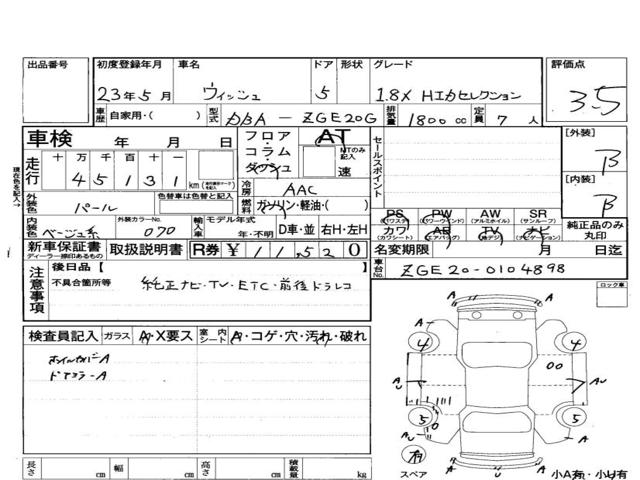 出品番号 初度登録年月 車名 ドア 形状 グレード 評価点
23年5月 ウィッシュ 5 1.8X HIDセレクション 3.5
車歴 自家用・( ) 型式 DBA-ZGE20G 排気量 1800cc 定員 7人
車検 年 月 日 フロア・コラム・ダッシュ AT MTのみ記入 速 セールスポイント [外装] B
現在色を記入→
走行 十万千百十一 45131 km
冷房 AAC [内装] B
外装色 パール 色替車は色替色を記入 燃料 ガソリン・軽油・( )
PS (パワステ) PW (パワーウインド) AW (アルミホイル) SR (サンルーフ)
カワ (カワシート) AB (エアバッグ) TV (地デジ) ナビ (ナビゲーション) 純正品のみ丸印
内装色 ベージュ系 外装カラーNo. 070 輸入車 モデル年式 年・不明 D車・並 右H・左H
新車保証書 ディーラー捺印あるもの 取扱説明書 R券 ¥11,520 名変期限 月 日迄
車台No. ZGE20-0104898
注意事項 後日品【 】 ロック車
不具合箇所等 純正ナビ・TV・ETC・前後ドラレコ
検査員記入 ガラス A・X要ス 室内シート A・コゲ・穴・汚れ・破れ
ホイルカバーA
ドアミラーA
A A
4 4
00
AU AU
5 5
00
AU A
有
スペア
A A
長さ cm 幅 cm 高さ cm 積載量 kg
小A有・小U有